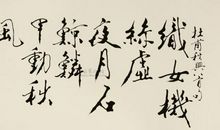 織女機
絲虛
夜月石
鯨鱗
甲動秋
風
杜甫秋興八首句